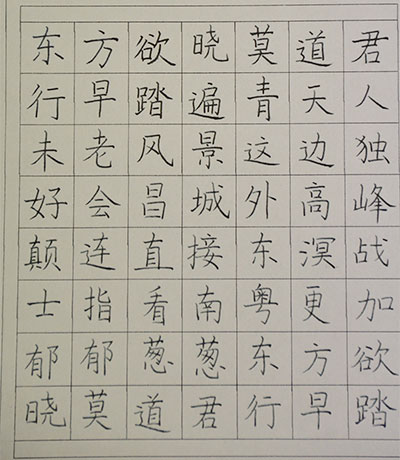 东方欲晓莫道君
行早踏遍青天人
未老风景这边独
好会昌城外高峰
颠连直接东溟战
士指看南粤更加
郁郁葱葱东方欲
晓莫道君行早踏